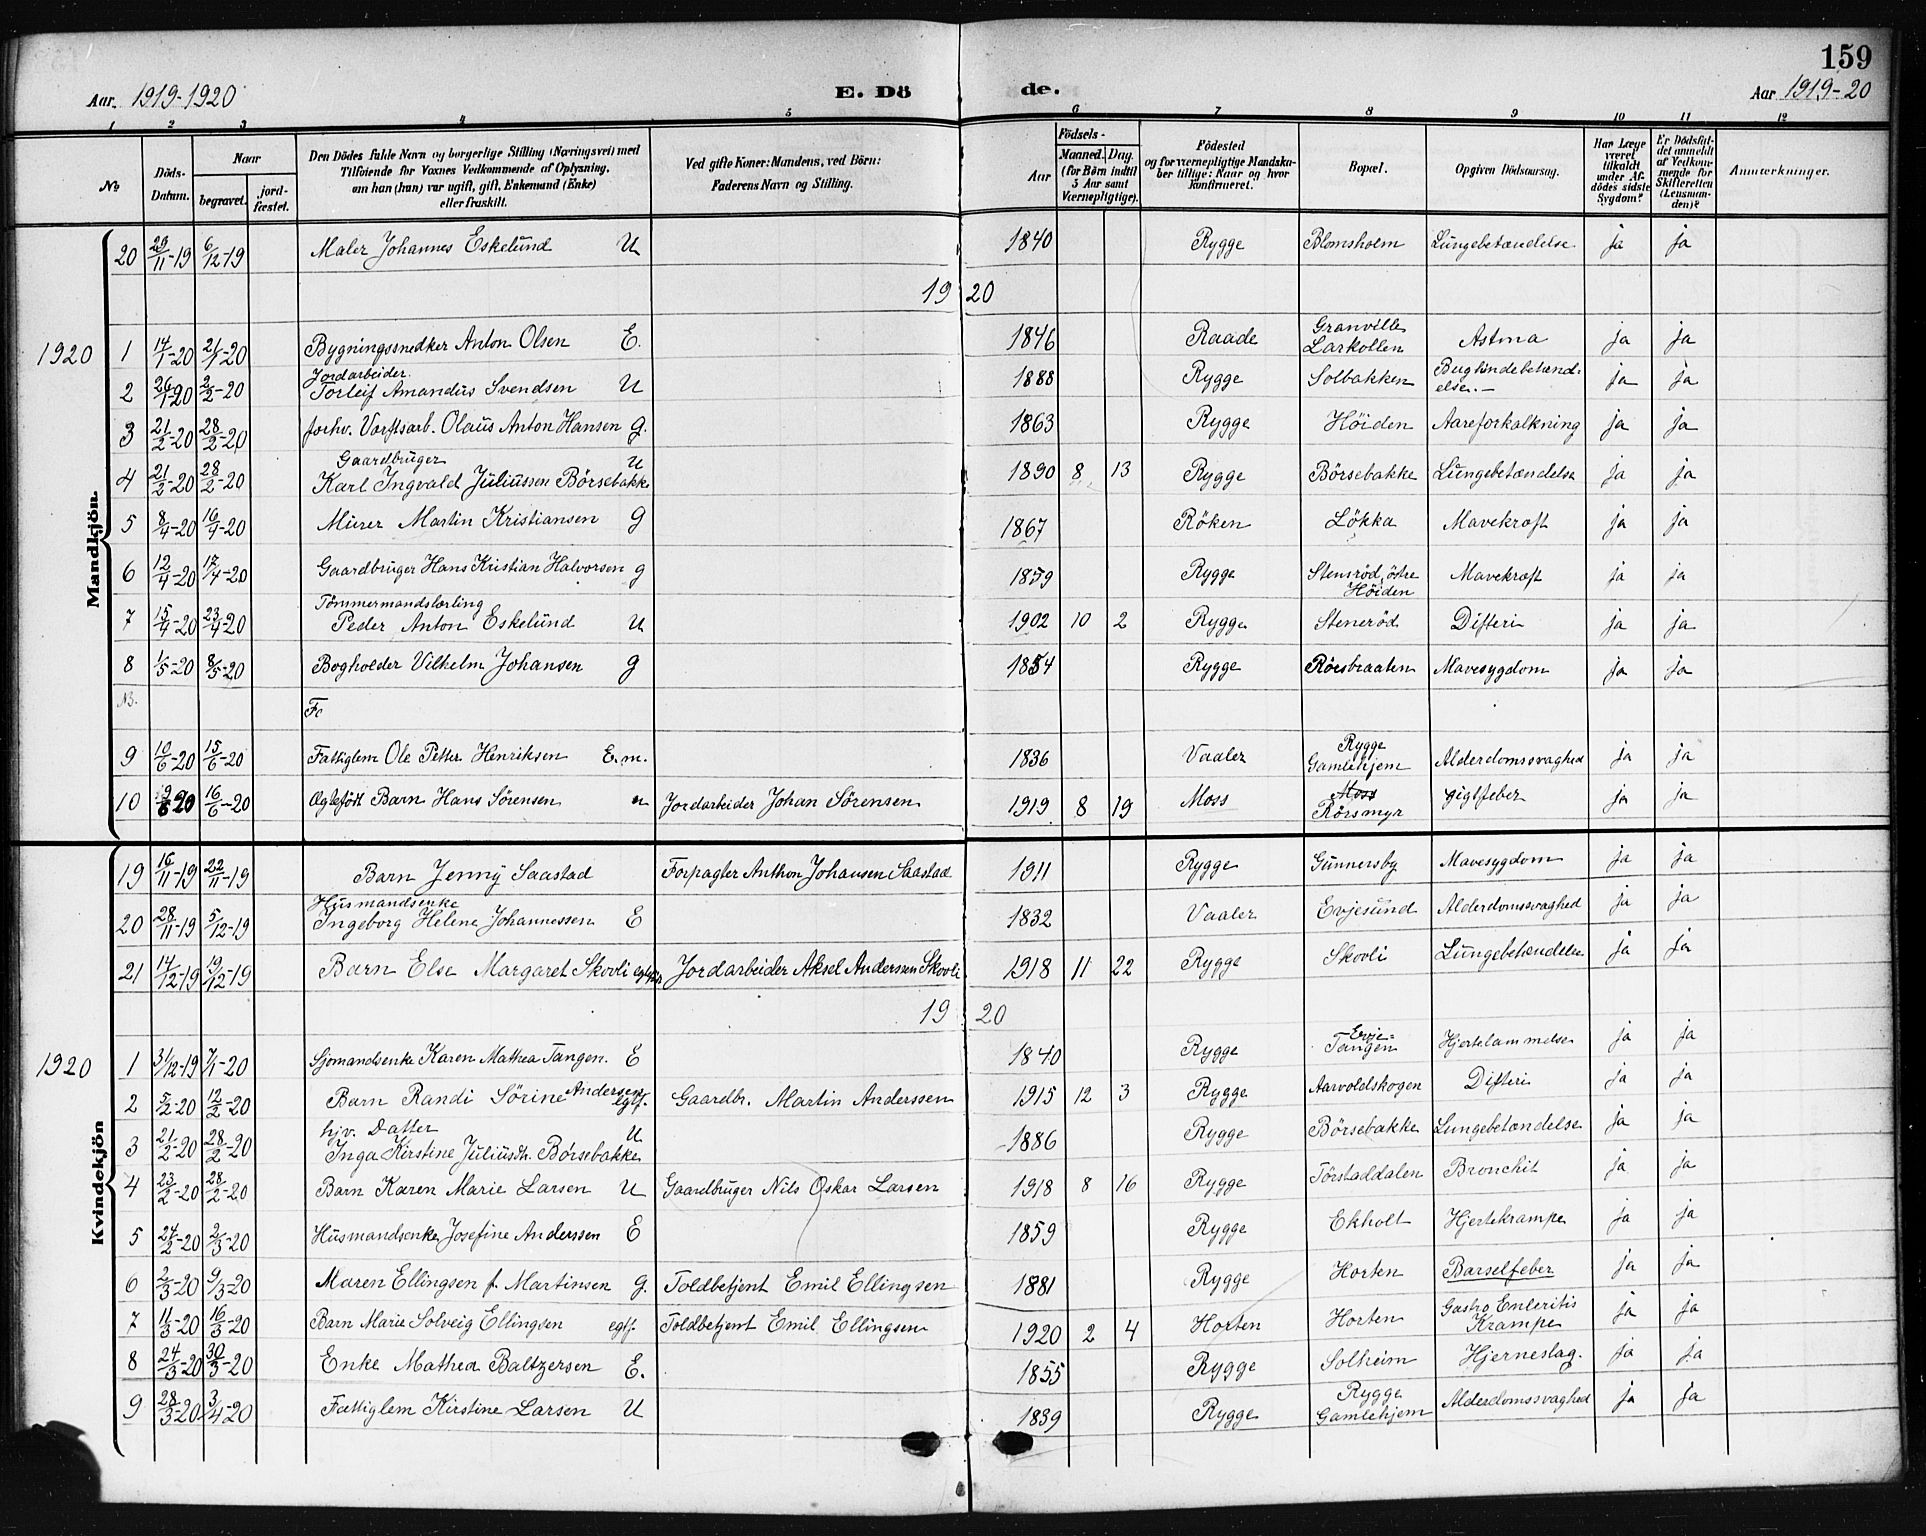 159
Aar. 1919-1920 E. Dö de. Aar 1919-20
1 2 3 4 5 6 7 8 9 10 11 12
No Döds-Datum. Naar begravet. jordfæstet. Den Dödes fulde Navn og borgerlige Stilling (Næringsvei) med Tilföiende for Voxnes Vedkommende af Oplysning, om han (hun) var ugift, gift, Enkemand (Enke) eller fraskilt. Ved gifte Koner: Mandens, ved Börn: Faderens Navn og Stilling. Aar Födsels- Maaned. Dag. (for Börn indtil 5 Aar samt Værnepligtige). Födested og for værnepligtige Mandskaber tillige: Naar og hvor konfirmeret. Bopæl. Opgiven Dödsaarsag. Har Læge været tilkaldt under Afdödes sidste Sygdom? Er Dödsfaldet anmeldt af Vedkommende for Skifteretten (Lensmanden)? Anmærkninger.
Mandkjön.
20 29/11-19 6/12-19 Maler Johannes Eskelund U 1840 Rygge Blomsholm Lungebetændelse ja ja
19 20
1920
1 14/1-20 21/1-20 Bygningssnedker Anton Olsen E. 1846 Raade Granville Larkollen Astma ja ja
2 26/1-20 2/2-20 Jordarbeider Torleif Amandus Svendsen U 1888 Rygge Solbakken Bughindebetændelse.- ja ja
3 21/2-20 28/2-20 forhv. Værftsarb. Olaus Anton Hansen g. 1863 Rygge Höiden Aareforkalkning ja ja
4 21/2-20 28/2-20 Gaardbruger Karl Ingvald Juliussen Börsebakke U 1890 8 13 Rygge Börsebakke Lungebetændelse ja ja
5 8/4-20 16/4-20 Murer Martin Kristiansen g 1867 Röken Lökka Mavekræft ja ja
6 12/4-20 17/4-20 Gaardbruger Hans Kristian Halvorsen g 1859 Rygge Stenröd, östre Höiden Mavekræft ja ja
7 15/4-20 23/4-20 Tömmermandslærling Peder Anton Eskelund U 1902 10 2 Rygge Steneröd Difteri ja ja
8 1/5-20 8/5-20 Bogholder Vilhelm Johansen g 1854 Rygge Rörsbraaten Mavesygdom ja ja
Fo
9 10/6-20 15/6-20 Fattiglem Ole Petter Henriksen E.m. 1836 Vaaler Rygge Gamlehjem Alderdomssvaghed ja ja
10 9/6 20 16/6-20 Ægtefödt Barn Hans Sörensen u Jordarbeider Johan Sörensen 1919 8 19 Moss Moss Rörsmyr gigtfeber ja ja
Kvindekjön
19 16/11-19 22/11-19 Barn Jenny Saastad Forpagter Anthon Johansen Saastad 1911 Rygge Gunnersby Mavesygdom ja ja
20 28/11-19 5/12-19 Husmandsenke Ingeborg Helene Johannessen E 1832 Vaaler Evjesund Alderdomssvaghed ja ja
21 14/12-19 19/12-19 Barn Else Margaret Skovli Jordarbeider Aksel Anderssen Skovli 1918 11 22 Rygge Skovli Lungebetændelse ja ja
19 20
1920
1 31/12-19 7/1-20 Sjömandsenke Karen Mathea Tangen. E 1840 Rygge Evje-Tangen Hjertelammelse ja ja
2 5/2-20 12/2-20 Barn Randi Sörine Anderssen egtf. Gaardbr. Martin Anderssen 1915 12 3 Rygge Aarvoldskogen Difteri ja ja
3 21/2-20 28/2-20 hjv. Datter Inga Kirstine Juliusdt. Börsebakke U 1886 Rygge Börsebakke Lungebetændelse ja ja
4 23/2-20 28/2-20 Barn Karen Marie Larsen U Gaardbruger Nils Oskar Larsen 1918 8 16 Rygge Törstaddalen Bronchit ja ja
5 24/2-20 2/3-20 Husmandsenke Josefine Anderssen E 1859 Rygge Ekholt Hjertekrampe ja ja
6 2/3-20 9/3-20 Maren Ellingsen f. Martinsen g. Toldbetjent Emil Ellingsen 1881 Rygge Horten Barselfeber ja ja
7 11/3-20 16/3-20 Barn Marie Solveig Ellingsen egtf. Toldbetjent Emil Ellingsen 1920 2 4 Horten Horten Gastro Enteritis Krampe ja ja
8 24/3-20 30/3-20 Enke Mathea Baltzersen E. 1855 Rygge Solheim Hjerneslag. ja ja
9 28/3-20 3/4-20 Fattiglem Kirstine Larsen U 1839 Rygge Rygge Gamlehjem Alderdomssvaghed ja ja